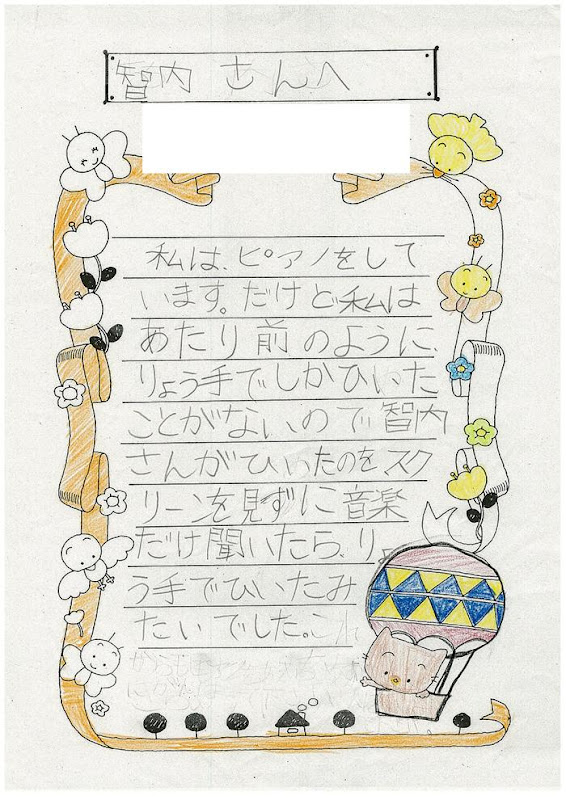 智内 さんへ
私は、ピアノをして
います。だけど私は
あたり前のように、
りょう手でしかひいた
ことがないので智内
さんがひいたのをスク
リーンを見ずに音楽
だけ聞いたら、りょ
う手でひいたみ
たいでした。これ
からも